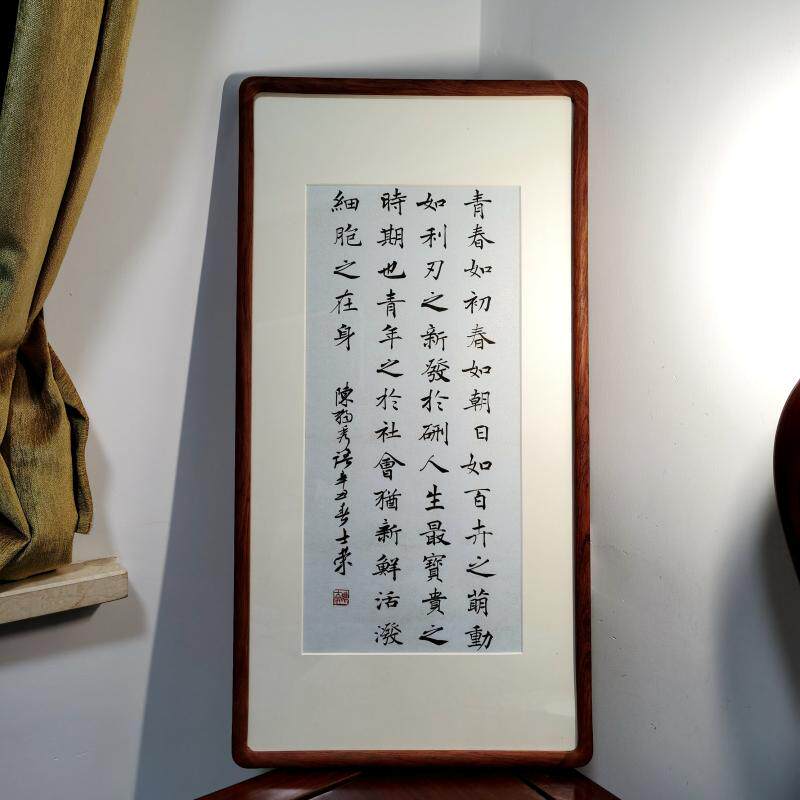 青春如初春如朝日如百卉之萌動
如利刃之新發於硎人生最寶貴之
時期也青年之於社會猶新鮮活潑
細胞之在身
陳獨秀語辛丑春士榮